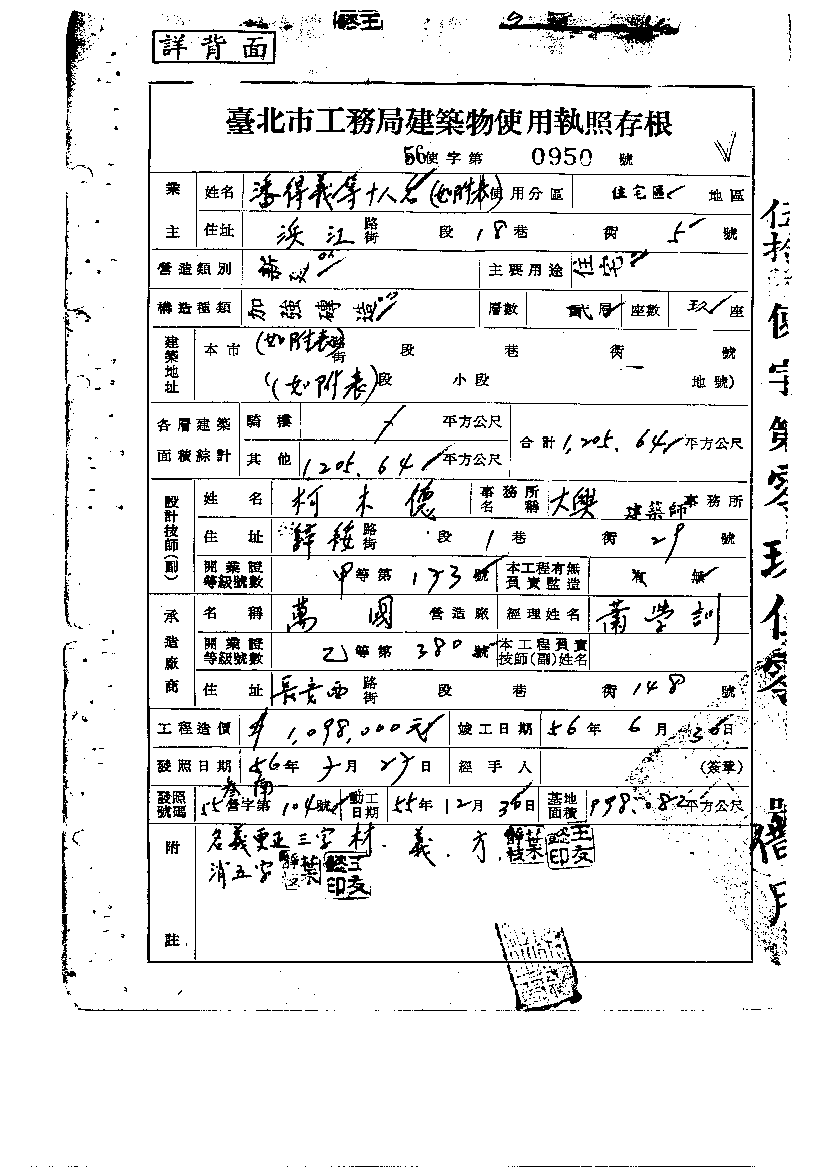 詳背面
臺北市工務局建築物使用執照存根
56使字第 0950 號
業主 姓名 潘得義等十人名(如附表) 使用分區 住宅區 地區
住址 浜江 路街 段 18巷 街 5 號
營造類別 新 主要用途 住宅
構造種類 加強磚造 層數 貳層 座數 玖座
建築地址 本市 (如附表) 街 段 巷 街 號
(如附表) 段 小段 地號)
各層建築面積綜計 騎樓 平方公尺 合計 1,205.64 平方公尺
其他 1205.64 平方公尺
設計技師(副) 姓名 柯木德 事務所名稱 大興建築師事務所
住址 路街 段 1巷 街 29 號
開業證等級號數 甲等第 號 本工程有無負責監造 有 無
承造廠商 名稱 萬國 營造廠 經理姓名 蕭瑩訓
開業證等級號數 乙等第 380 號 本工程負責技師(副)姓名
住址 長安西 路街 段 巷 街 148 號
工程造價 1,098,000元 竣工日期 56年 6月 30日
發照日期 56年 月 日 經手人 (簽章)
發照號碼 55營字第 104號 動工日期 55年 12月 30日 基地面積 998.082 平方公尺
附註 名義更正三字 材.義.方. 靜葉枝 王友懿印
消五字 王友懿印